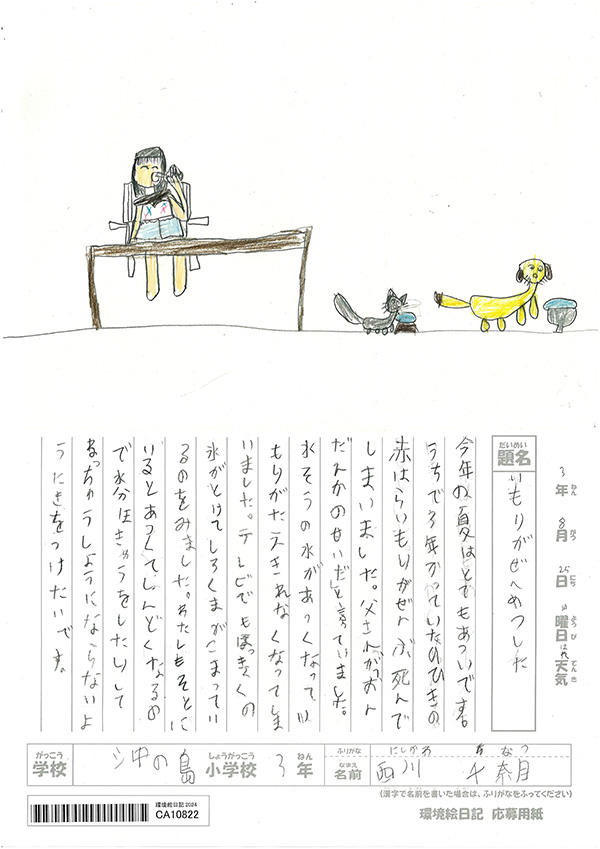 3年 8月 25日 日曜日 はれ天気
ねん がつ にち ようび てんき
だいめい
題名
いもりがぜんめつした
今年の夏はとてもあついです。
うちで3年かっていたのひきの
赤はらいもりがぜんぶ死んで
しまいました。父さんが「おん
だんかのせいだ」と言っていました。
水そうの水があつくなって、い
もりがたえきれなくなってしま
いました。テレビでもほっきょくの
氷がとけてしろくまがこまってい
るのをみました。わたしもそとに
いるとあつくてしんどくなるの
で水分ほきゅうをしたりして
ねっちゅうしょうにならないよ
うにきをつけたいです。
がっこう しょうがっこう ねん
学校 沖の島 小学校 3年
ふりがな にしかわ ちなつ
なまえ
名前 西川 千奈月
(漢字で名前を書いた場合は、ふりがなをふってください)
環境絵日記 応募用紙
環境絵日記 2024
CA10822